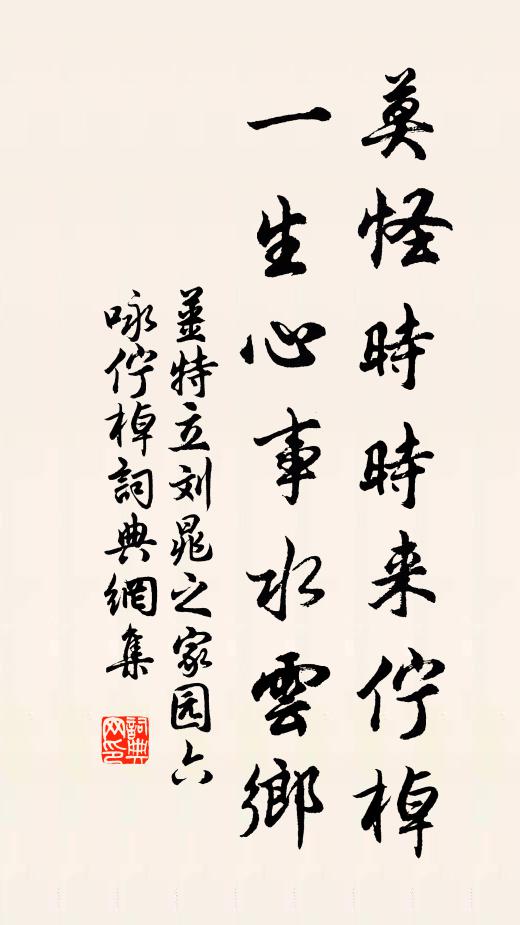 莫怪時時来佇棹
一生心事水雲鄉
姜特立刘晁之家园六
咏佇棹詞典網集
詞典网印